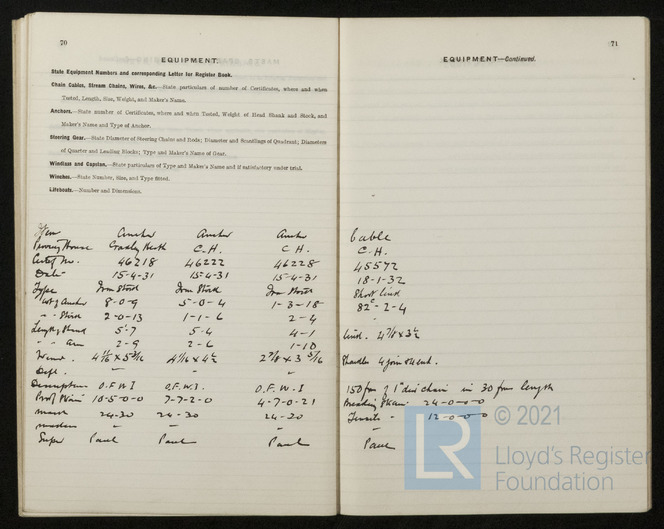 70
EQUIPMENT.
State Equipment Numbers and corresponding Letter for Register Book.
Chain Cables, Stream Chains, Wires, &c.—State particulars of number of Certificates, where and when
Tested, Length, Size, Weight, and Maker's Name.
Anchors.—State number of Certificates, where and when Tested, Weight of Head Shank and Stock, and
Maker's Name and Type of Anchor.
Steering Gear.—State Diameter of Steering Chains and Rods; Diameter and Scantlings of Quadrant; Diameters
of Quarter and Leading Blocks; Type and Maker's Name of Gear.
Windlass and Capstan.—State particulars of Type and Maker's Name and if satisfactory under trial.
Winches.—State Number, Size, and Type fitted.
Lifeboats.—Number and Dimensions.
Item Anchor Anchor Anchor
Proving House Cradley Heath C.H. C.H.
Certif No. 46218 46222 46228
Date 15-4-31 15-4-31 15-4-31
Type Iron Stock Iron Stock Iron Stock
Wt of Anchor 8-0-9 5-0-4 1-3-18
" - Stock 2-0-13 1-1-6 2-4
Length Shank 5-7 5-4 4-1
" - Arm 2-9 2-6 1-10
4 1/2
Description O.F.W.I O.F.W.I. O.F.W.I
Proof Strain 10-5-0-0 7-7-2-0 4-7-0-21
24-30 24-30 24-30
Super Paul Paul Paul
71
EQUIPMENT—Continued.
Cable
C.H.
45572
18-1-32
Short link
82-2-4
link. 4 7/8 x 3 1/2
150 fms of 1" dia chain in 30 fms length
Breaking Strain 24-0-0-0
Tensile " 12-0-0-0
Paul
© 2021
LR
Lloyd's Register
Foundation